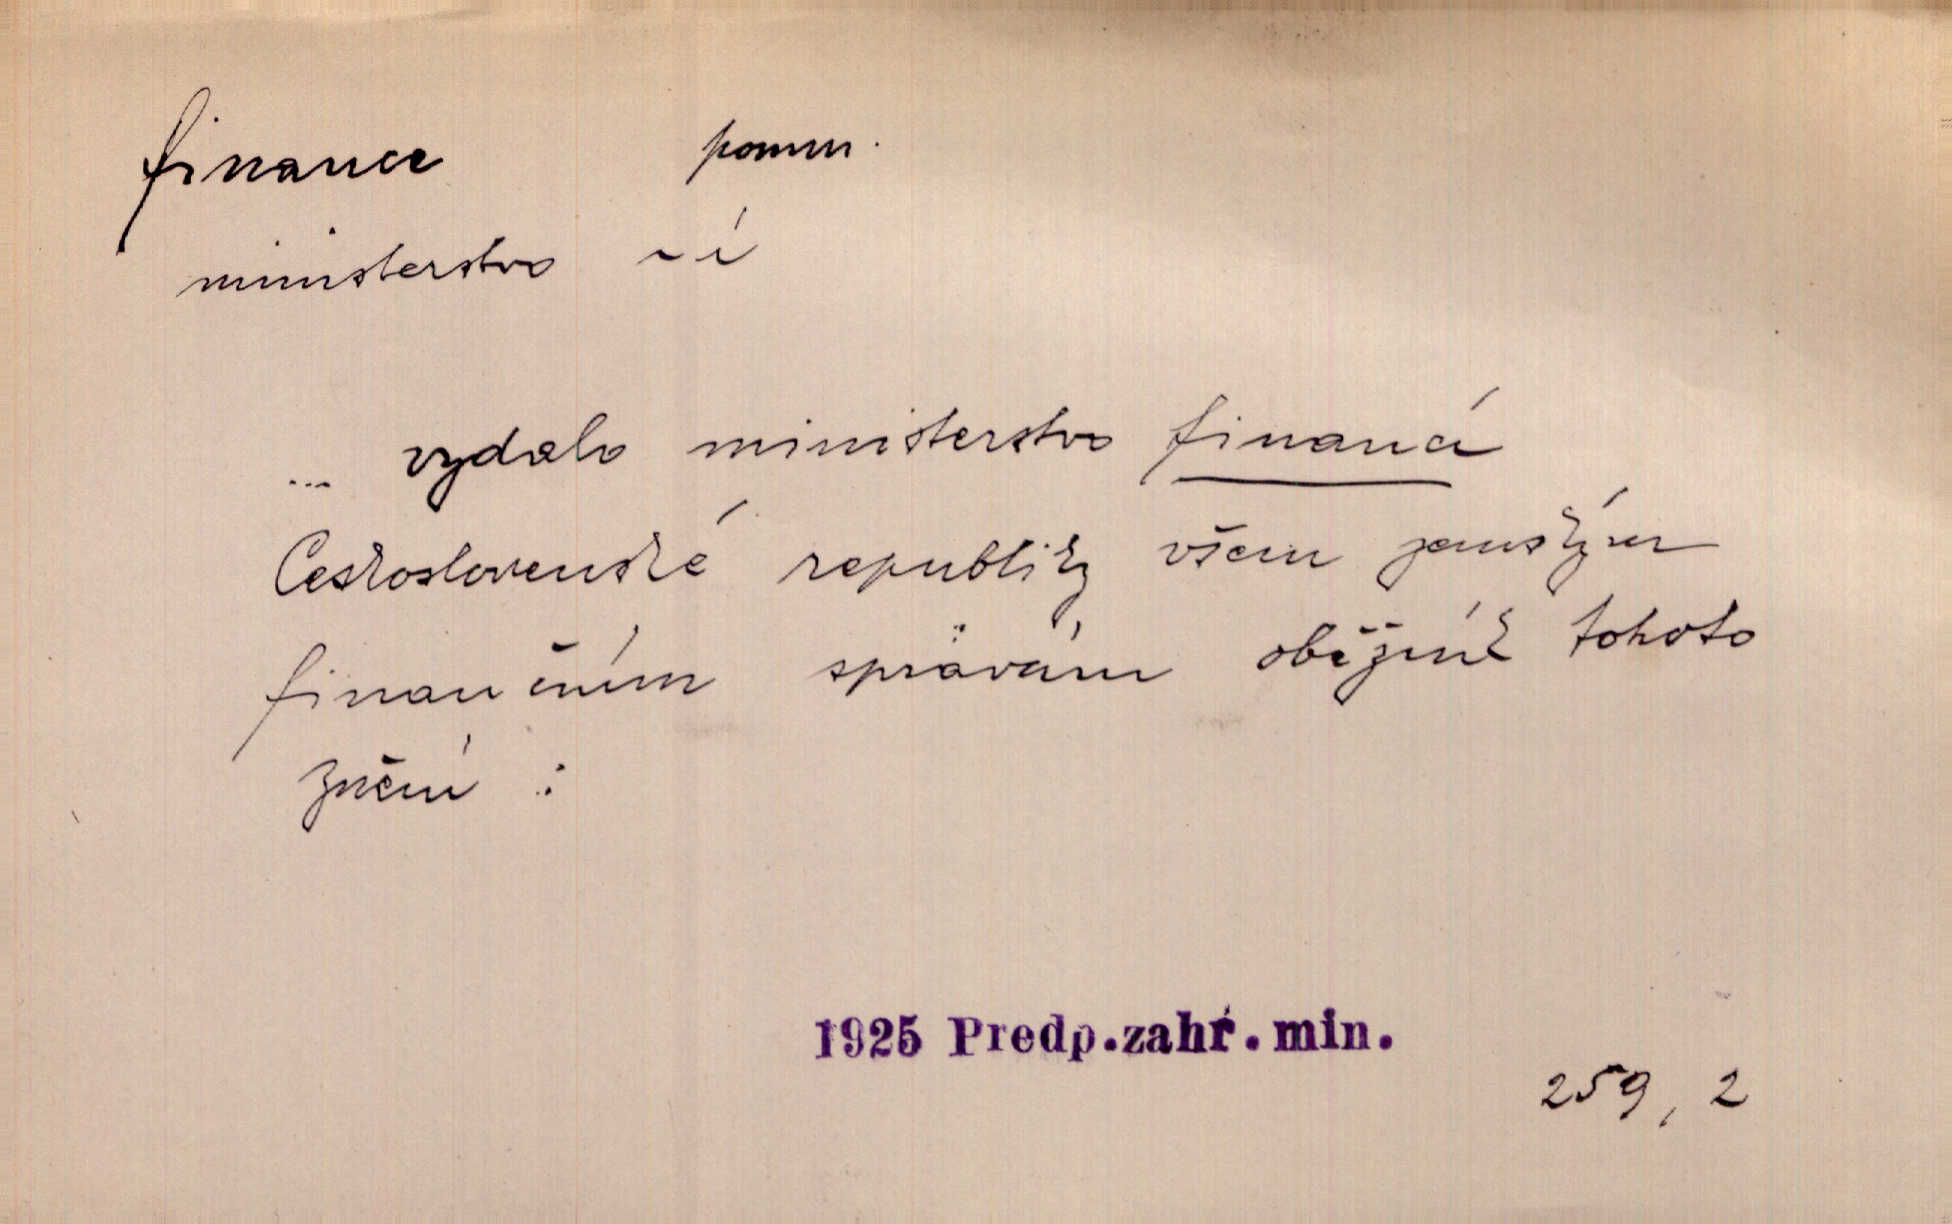 finance pomn.
ministerstvo ~í
... vydalo ministerstvo financí
Československé republiky všem zemským
finančním správám oběžník tohoto
znění :
1925 Predp.zahr.min.
259, 2